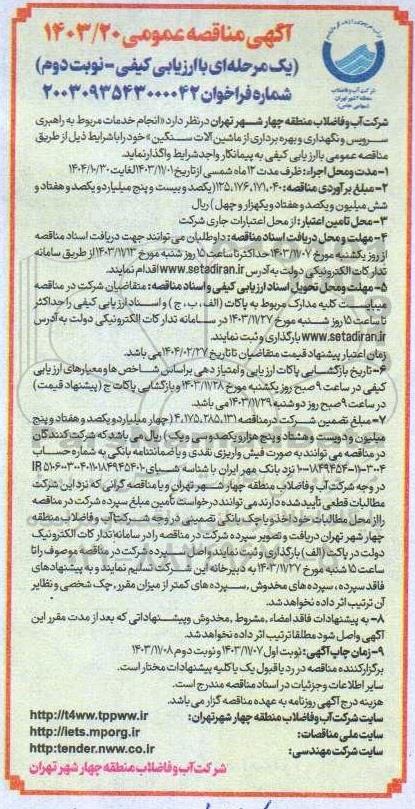 آگهی مناقصه عمومی ۱۴۰۳/۲۰
(یک مرحله‌ای با ارزیابی کیفی - نوبت دوم)
شماره فراخوان ۲۰۰۳۰۹۳۵۴۳۰۰۰۰۴۲
شرکت آب و فاضلاب
منطقه چهار شهر تهران
(سهامی خاص)
شرکت آب و فاضلاب منطقه چهار شهر تهران در نظر دارد «انجام خدمات مربوط به راهبری
سرویس و نگهداری و بهره برداری از ماشین آلات سنگین» خود را با شرایط ذیل از طریق
مناقصه عمومی با ارزیابی کیفی به پیمانکار واجد شرایط واگذار نماید.
۱- مدت و محل اجراء: ظرف مدت ۱۲ ماه شمسی از تاریخ ۱۴۰۳/۱۱/۰۱ لغایت ۱۴۰۴/۱۰/۳۰
۲- مبلغ برآوردی مناقصه: ۱۲۵,۱۷۶,۱۷۱,۰۴۰ (یکصد و بیست و پنج میلیارد و یکصد و هفتاد و
شش میلیون و یکصد و هفتاد و یکهزار و چهل) ریال
۳- محل تامین اعتبار: از محل اعتبارات جاری شرکت
۴- مهلت و محل دریافت اسناد مناقصه: داوطلبان می توانند جهت دریافت اسناد مناقصه
از روز یکشنبه مورخ ۱۴۰۳/۱۱/۰۷ حداکثر تا ساعت ۱۵ روز شنبه مورخ ۱۴۰۳/۱۱/۱۳ از طریق سامانه
تدارکات الکترونیکی دولت به آدرس www.setadiran.ir اقدام نمایند.
۵- مهلت و محل تحویل اسناد ارزیابی کیفی و اسناد مناقصه: متقاضیان شرکت در مناقصه
میبایست کلیه مدارک مربوط به پاکات (الف، ب، ج) و اسناد ارزیابی کیفی را حداکثر
تا ساعت ۱۵ روز شنبه مورخ ۱۴۰۳/۱۱/۲۷ در سامانه تدارکات الکترونیکی دولت به آدرس
www.setadiran.ir بارگذاری و ثبت نمایند.
زمان اعتبار پیشنهاد قیمت متقاضیان تا تاریخ ۱۴۰۴/۰۲/۲۷ می باشد.
۶- تاریخ بازگشایی پاکات ارزیابی و امتیاز دهی براساس شاخص ها و معیارهای ارزیابی
کیفی در ساعت ۹ صبح روز یکشنبه مورخ ۱۴۰۳/۱۱/۲۸ و بازگشایی پاکات ج (پیشنهاد قیمت)
در ساعت ۹ صبح روز دوشنبه ۱۴۰۳/۱۱/۲۹ می باشد.
۷- مبلغ تضمین شرکت در مناقصه ۴,۱۷۵,۲۸۵,۱۳۱ (چهار میلیارد و یکصد و هفتاد و پنج
میلیون و دویست و هشتاد و پنج هزار و یکصد و سی و یک) ریال می باشد که شرکت کنندگان
در مناقصه می توانند به صورت فیش واریزی نقدی و یا ضمانتنامه بانکی به شماره حساب
نزد بانک مهر ایران با شناسه شبای
در وجه شرکت آب و فاضلاب منطقه چهار شهر تهران و یا مناقصه گرانی که نزد این شرکت
مطالبات قطعی تأیید شده دارند می توانند درخواست تأمین مبلغ سپرده شرکت در مناقصه
را از محل مطالبات خود اخذ و یا چک بانکی تضمینی در وجه شرکت آب و فاضلاب منطقه
چهار شهر تهران دریافت و تصویر سپرده شرکت در مناقصه را در سامانه تدارکات الکترونیک
دولت در پاکت (الف) بارگذاری و ثبت نمایند و اصل سپرده شرکت در مناقصه موصوف را تا
ساعت ۱۵ شنبه مورخ ۱۴۰۳/۱۱/۲۷ به دبیرخانه این شرکت تسلیم نمایند و به پیشنهادهای
فاقد سپرده، سپرده های مخدوش، سپرده های کمتر از میزان مقرر، چک شخصی و نظایر
آن ترتیب اثر داده نخواهد شد.
۸- به پیشنهادات فاقد امضاء، مشروط، مخدوش و پیشنهاداتی که بعد از مدت مقرر این
آگهی واصل شود مطلقا ترتیب اثر داده نخواهد شد.
۹- زمان چاپ آگهی: نوبت اول ۱۴۰۳/۱۱/۰۷ و نوبت دوم ۱۴۰۳/۱۱/۰۸
برگزار کننده مناقصه در رد یا قبول یک یا کلیه پیشنهادات مختار است.
سایر اطلاعات و جزئیات در اسناد مناقصه مندرج است.
هزینه درج آگهی روزنامه به عهده مناقصه گزار می باشد.
سایت شرکت آب و فاضلاب منطقه چهار شهر تهران: http://t4ww.tppww.ir
سایت ملی مناقصات: http://iets.mporg.ir
سایت شرکت مهندسی: http:tender.nww.co.ir
شرکت آب و فاضلاب منطقه چهار شهر تهران